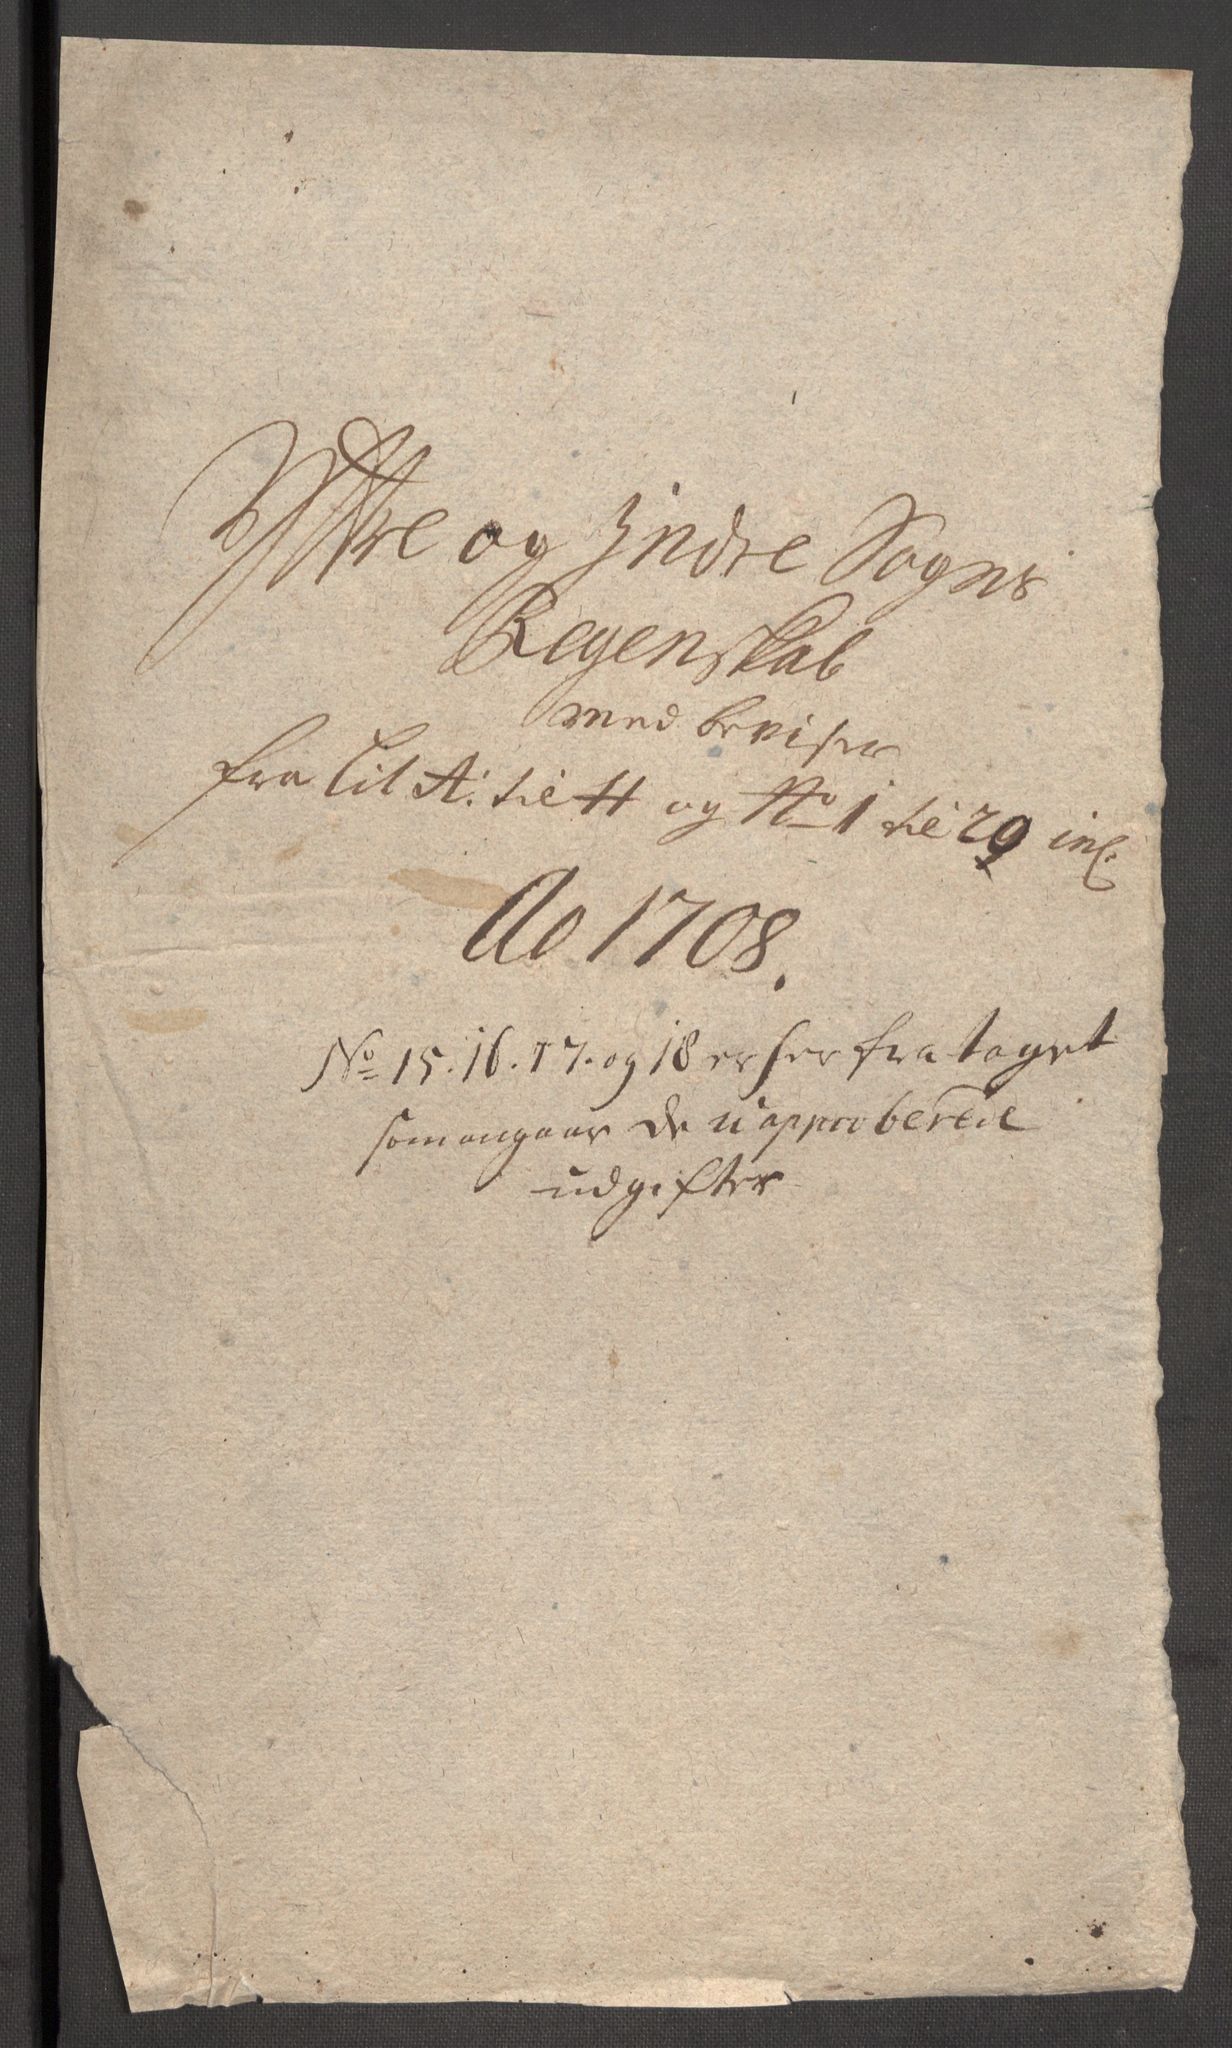 Yttre og Indre Sogns
Regenskab
med beviser
fra Lit A. til H og No 1 til 29 incl.
Ao 1708.
No 15. 16. 17. og 18 er her fra taget
som angaar de uapproberede
udgifter